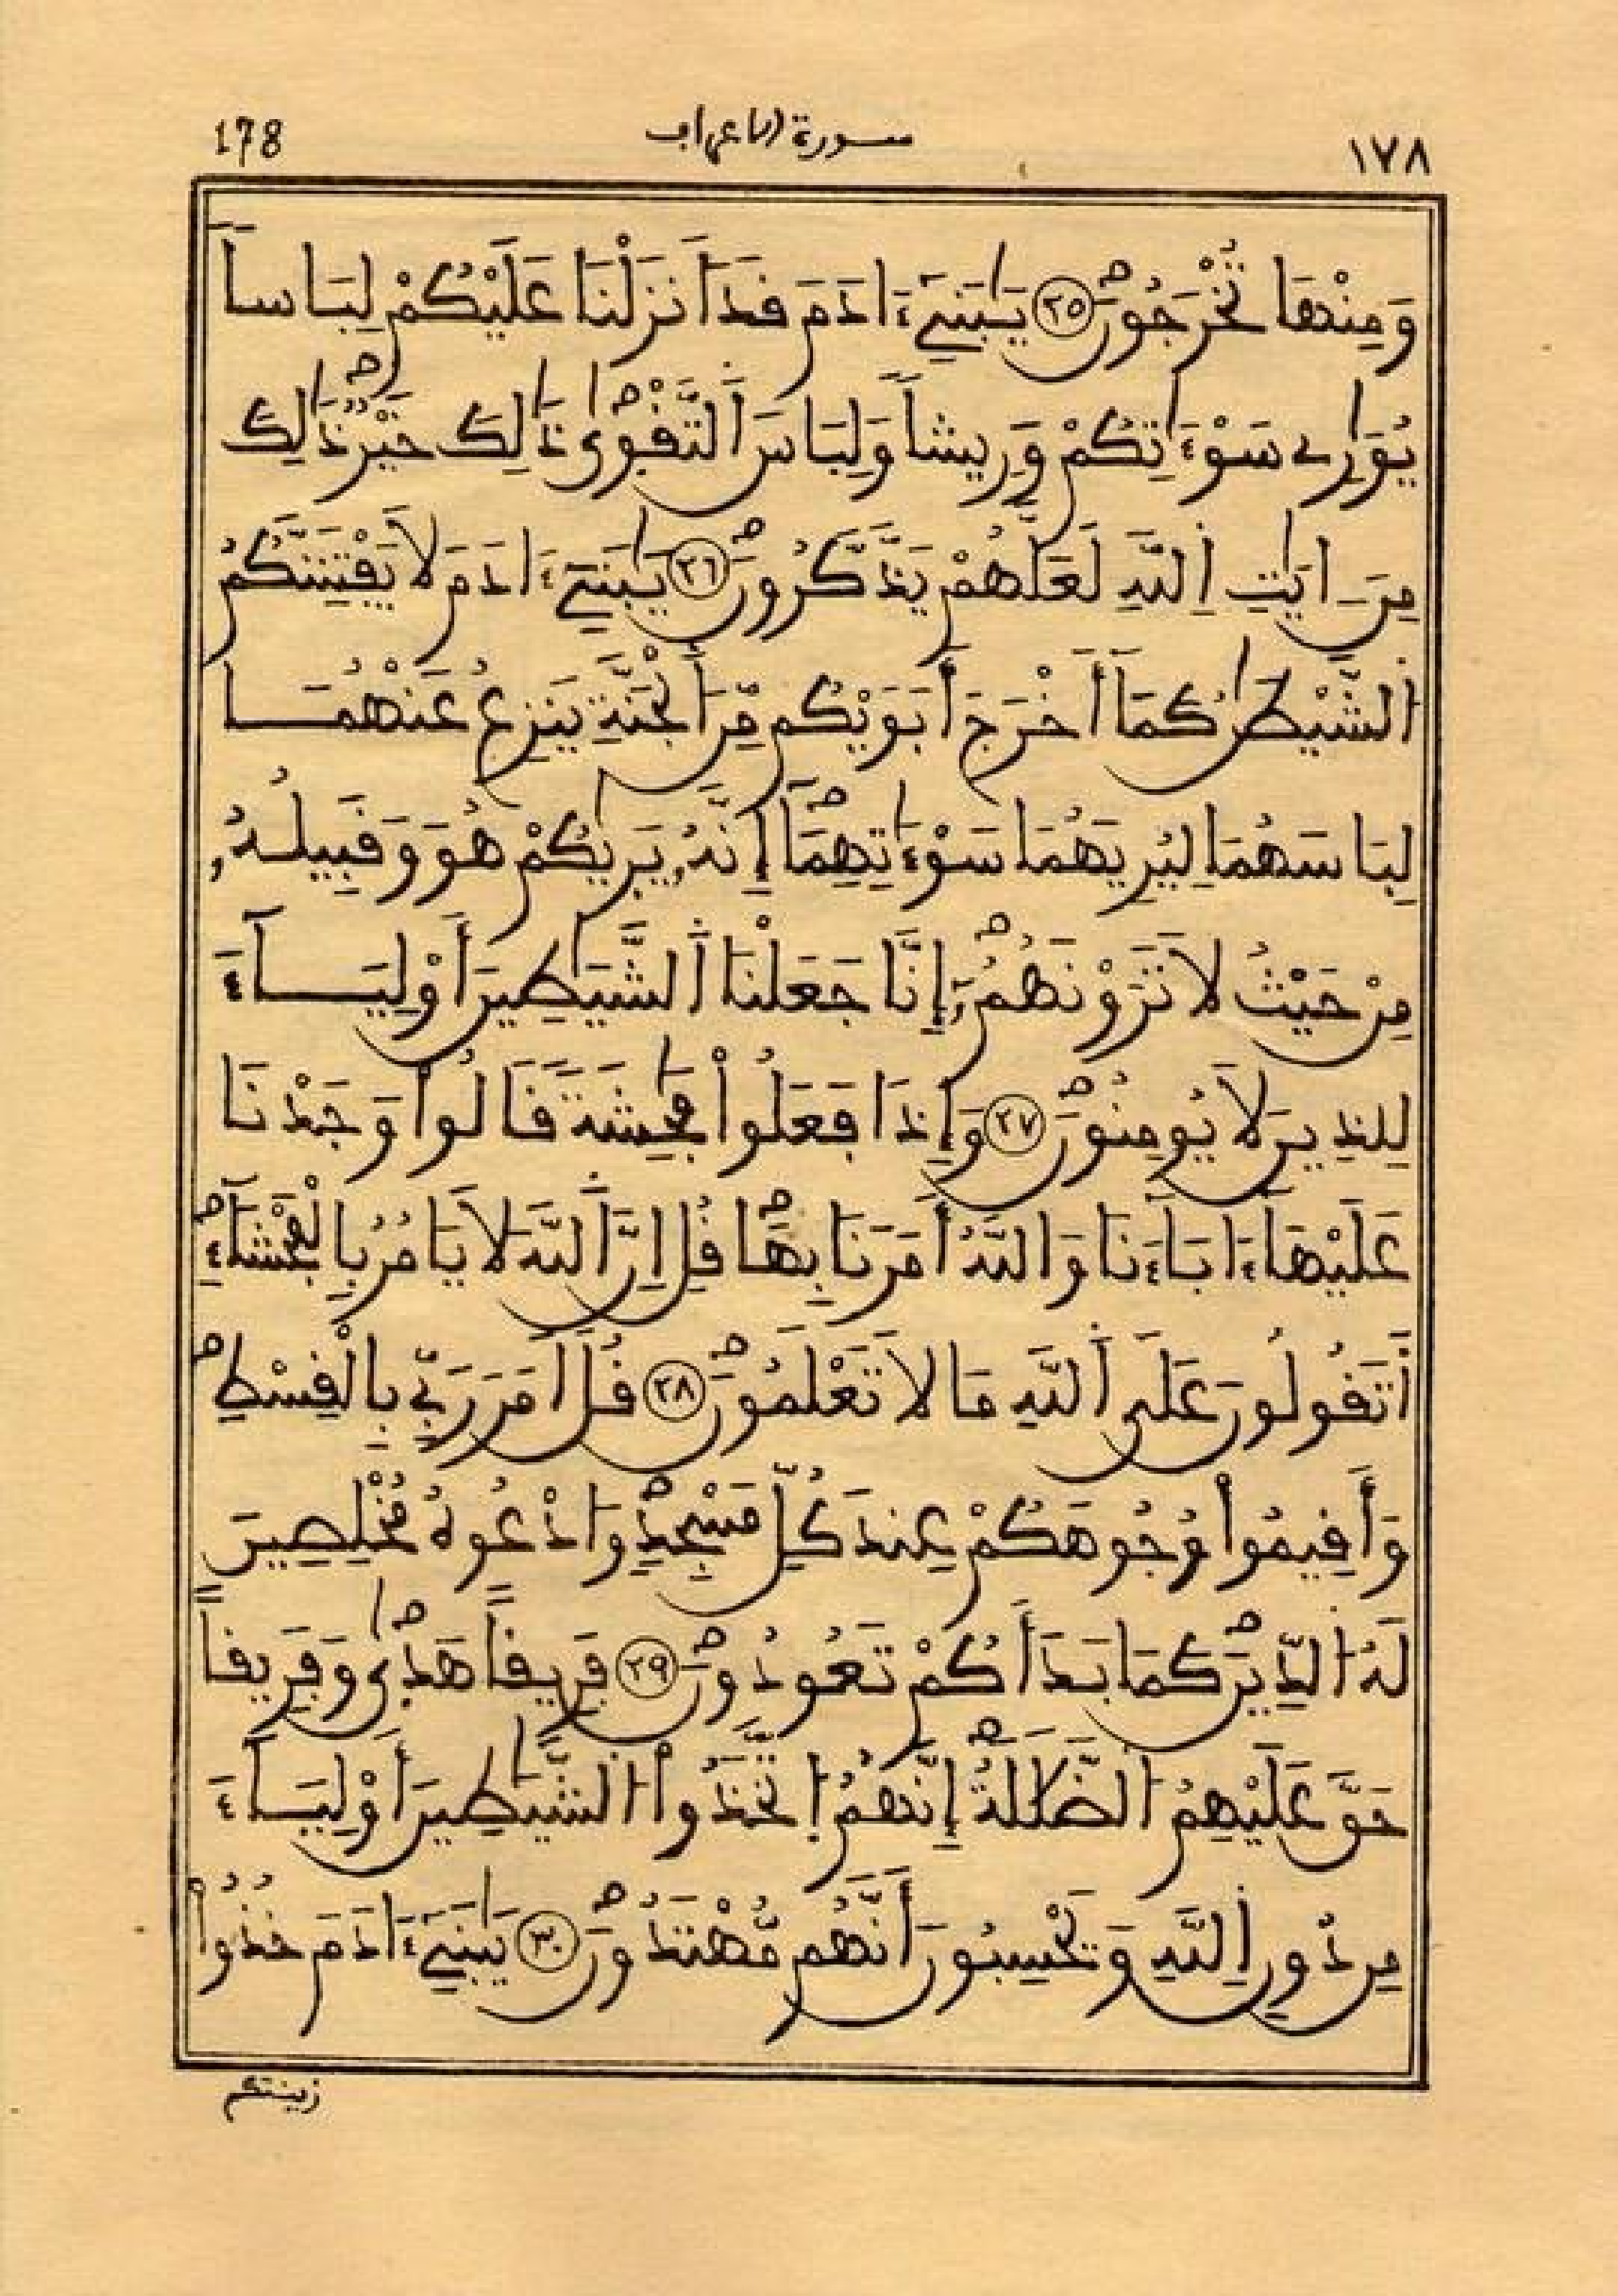 178 سورة الاعراف ١٧٨
وَمِنْهَا تُخْرَجُونَ ٢٥ يَٰبَنِےٓ ءَادَمَ قَدَ اَنزَلْنَا عَلَيْكُمْ لِبَاساٗ
يُوَٰرِے سَوْءَٰتِكُمْ وَرِيشاٗ وَلِبَاسَ اَ۬لتَّقْوٝيٰ ذَٰلِكَ خَيْرٞ ذَٰلِكَ
مِنَ ـ اٰيَٰتِ اِ۬للَّهِ لَعَلَّهُمْ يَذَّكَّرُونَ ٢٦ يَٰبَنِےٓ ءَادَمَ لَا يَفْتِنَنَّكُمُ
اُ۬لشَّيْطَٰنُ كَمَآ أَخْرَجَ أَبَوَيْكُم مِّنَ اَ۬لْجَنَّةِ يَنزِعُ عَنْهُمَا
لِبَاسَهُمَا لِيُرِيَهُمَا سَوْءَٰتِهِمَآ إِنَّهُۥ يَرٝيٰكُمْ هُوَ وَقَبِيلُهُۥ
مِنْ حَيْثُ لَا تَرَوْنَهُمُۥٓ إِنَّا جَعَلْنَا اَ۬لشَّيَٰطِينَ أَوْلِيَآءَ
لِلذِينَ لَا يُومِنُونَ ٢٧ وَإِذَا فَعَلُواْ فَٰحِشَةٗ قَالُواْ وَجَدْنَا
عَلَيْهَآ ءَابَآءَنَا وَاللَّهُ أَمَرَنَا بِهَا قُلِ اِنَّ اَ۬للَّهَ لَا يَامُرُ بِالْفَحْشَآءِ
اَ۬تَقُولُونَ عَلَي اَ۬للَّهِ مَا لَا تَعْلَمُونَ ٢٨ قُلَ اَمَرَ رَبِّے بِالْقِسْطِ
وَأَقِيمُواْ وُجُوهَكُمْ عِندَ كُلِّ مَسْجِدٖ وَادْعُوهُ مُخْلِصِينَ
لَهُ اُ۬لدِّينَ كَمَا بَدَأَكُمْ تَعُودُونَ ٢٩ فَرِيقاً هَدٝيٰ وَفَرِيقاً
حَقَّ عَلَيْهِمُ اُ۬لضَّلَٰلَةُ إِنَّهُمُ اُ۪تَّخَذُواْ اُ۬لشَّيَٰطِينَ أَوْلِيَآءَ
مِن دُونِ اِ۬للَّهِ وَيَحْسِبُونَ أَنَّهُم مُّهْتَدُونَ ٣٠ يَٰبَنِےٓ ءَادَمَ خُذُواْ
زينتكم